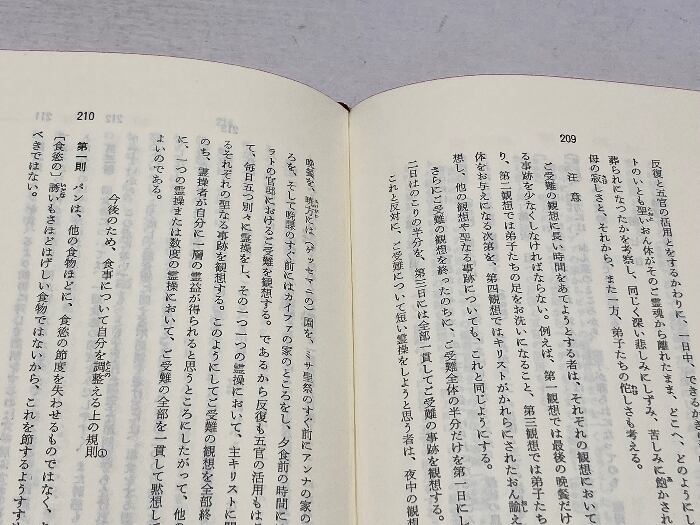 209
反復と五官の活用とをするかわりに、一日中、できるかぎり
トのいとも聖いおん体がそのご霊魂から離れたまま、どこへ、どのように
葬られになったかを考察し、同じく深い悲しみにしずみ、苦しみに飽かされ
母の寂しさと、それから、また一方、弟子たちの侘しさも考える。
注意
ご受難の観想に長い時間をあてようとする者は、それぞれの観想において
る事跡を少なくしなければならない。例えば、第一観想では最後の晩餐だけ
り、第二観想では弟子たちの足をお洗いになること、第三観想では弟子たち
体をお与えになる次第を、第四観想ではキリストがかれらにされたおん諭
想し、他の観想や聖なる事跡についても、これと同じようにする。
さらにご受難の観想を終ったのちに、ご受難全体の半分だけを第一日にし
二日はのこりの半分を、第三日には全部一貫してご受難の事跡を観想する。
これと反対に、ご受難について短い霊操をしようと思う者は、夜中の観想
晩餐を、暁には(ゲッセマニの)園を、ミサ聖祭のすぐ前にアンナの家の
ろを、そして晩課のすぐ前にはカイファの家のところをし、夕食前の時間に
ラトの官邸におけるご受難を観想する。であるから反復も五官の活用もは
て、毎日五つ別々に霊操をし、その一つ一つの霊操において、主キリストに関
るそれぞれの聖なる事跡を観想する。このようにしてご受難の観想を全部終
のち、霊操者が自分に一層の霊益が得られると思うところにしたがって、他の
に、一つの霊操または数度の霊操において、ご受難の全部を一貫して黙想して
よいのである。
今後のため、食事について自分を調整える上の規則①
210
第一則 パンは、他の食物ほどに、食慾の節度を失わせるものではなく、ま
〔食慾の〕誘いもさほどはげしい食物ではないから、これを節するようすす
べきではない。